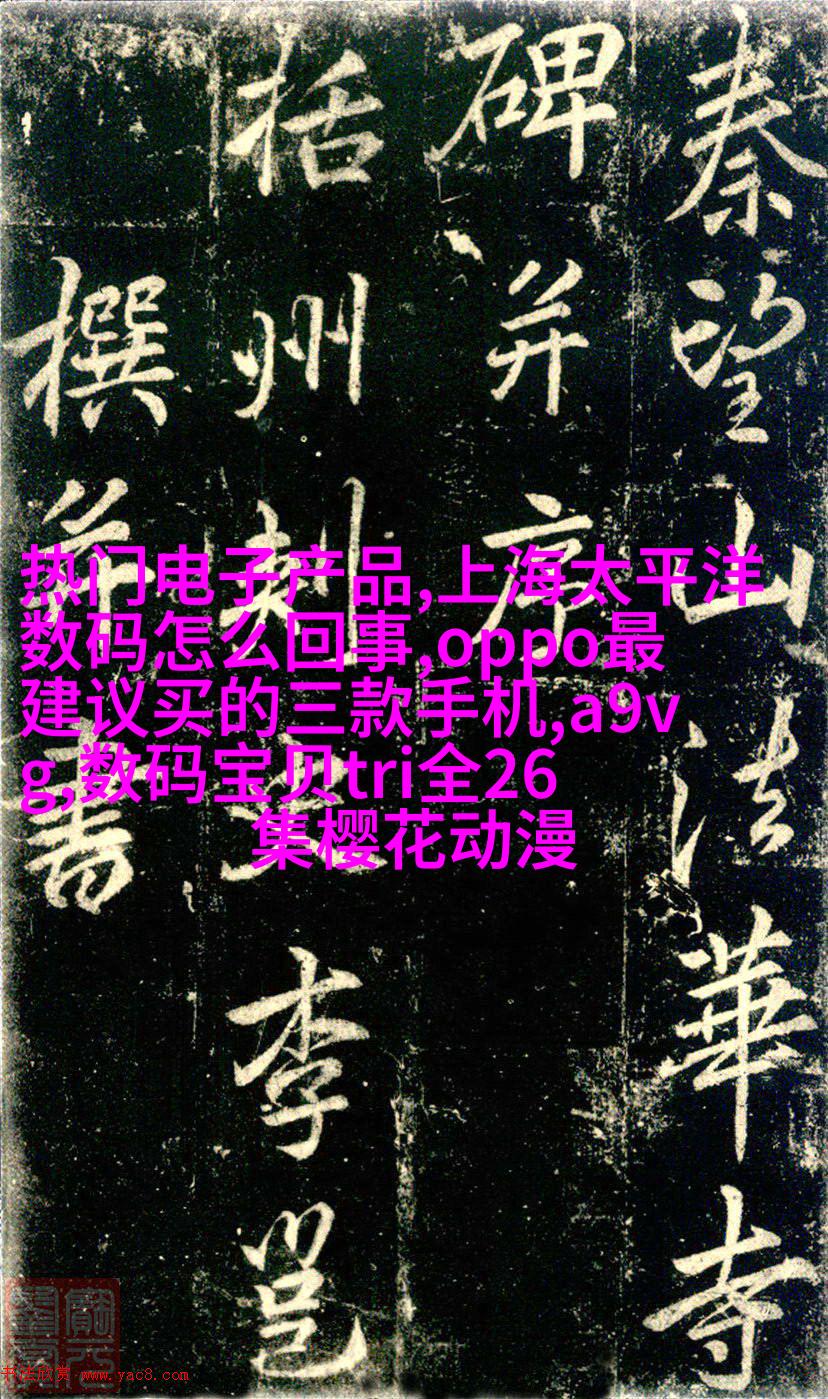 秦望山法華寺
碑并序
括州刺史李邕
撰并書
热门电子产品,上海太平洋
数码怎么回事,oppo最
建议买的三款手机,a9v
g,数码宝贝tri全26
集樱花动漫
书法欣赏 www.yac8.com